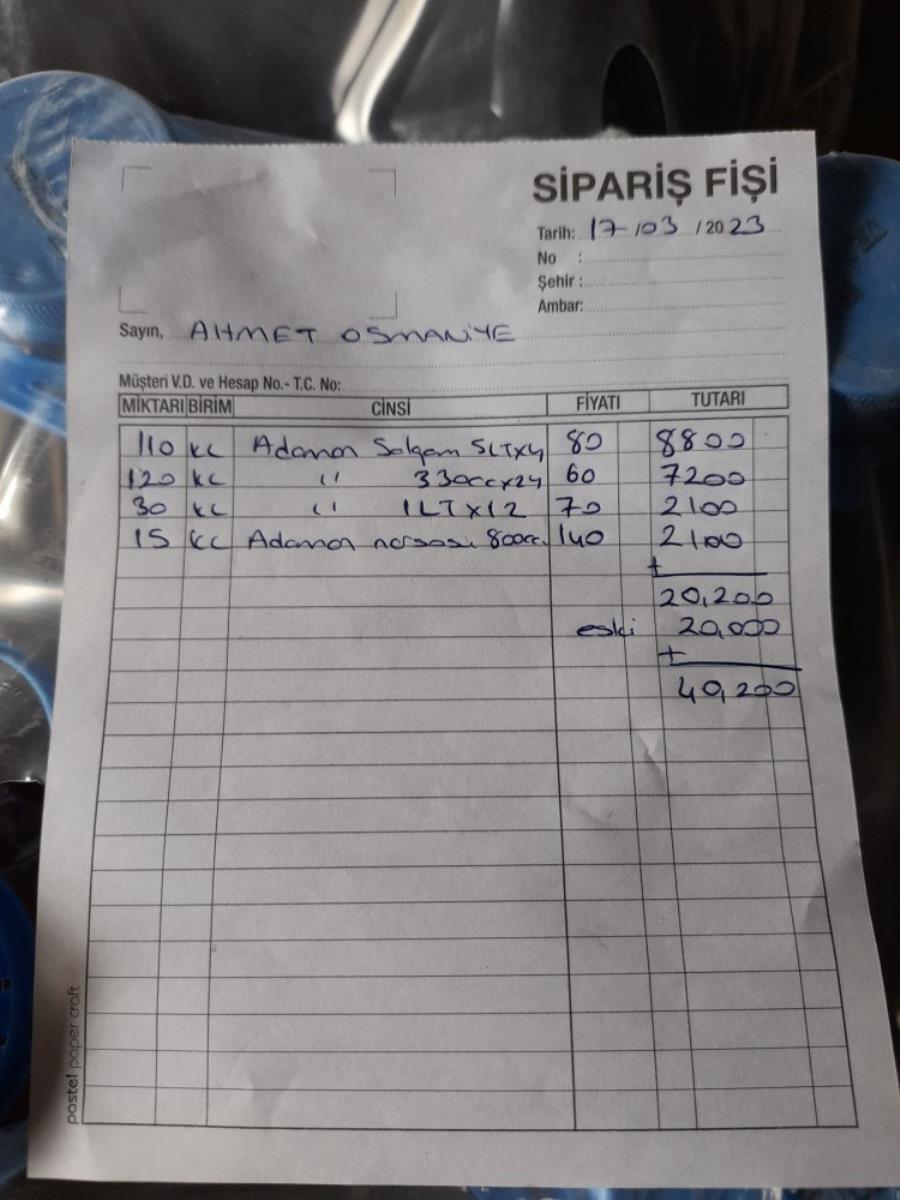 SİPARİŞ FİŞİ
Tarih: 17/03/2023
No :
Şehir :
Ambar:
Sayın, AHMET OSMANİYE
Müşteri V.D. ve Hesap No.- T.C. No:
MİKTARI BİRİM CİNSİ FİYATI TUTARI
110 KC Adanan Şalgam 5LTX4 80 8800
120 KC " 330ccx24 60 7200
30 KC " 1LTX12 70 2100
15 KC Adanan narsosu 800cc. 140 2100
+
20,200
eski 20,000
+
40,200
pastel paper craft